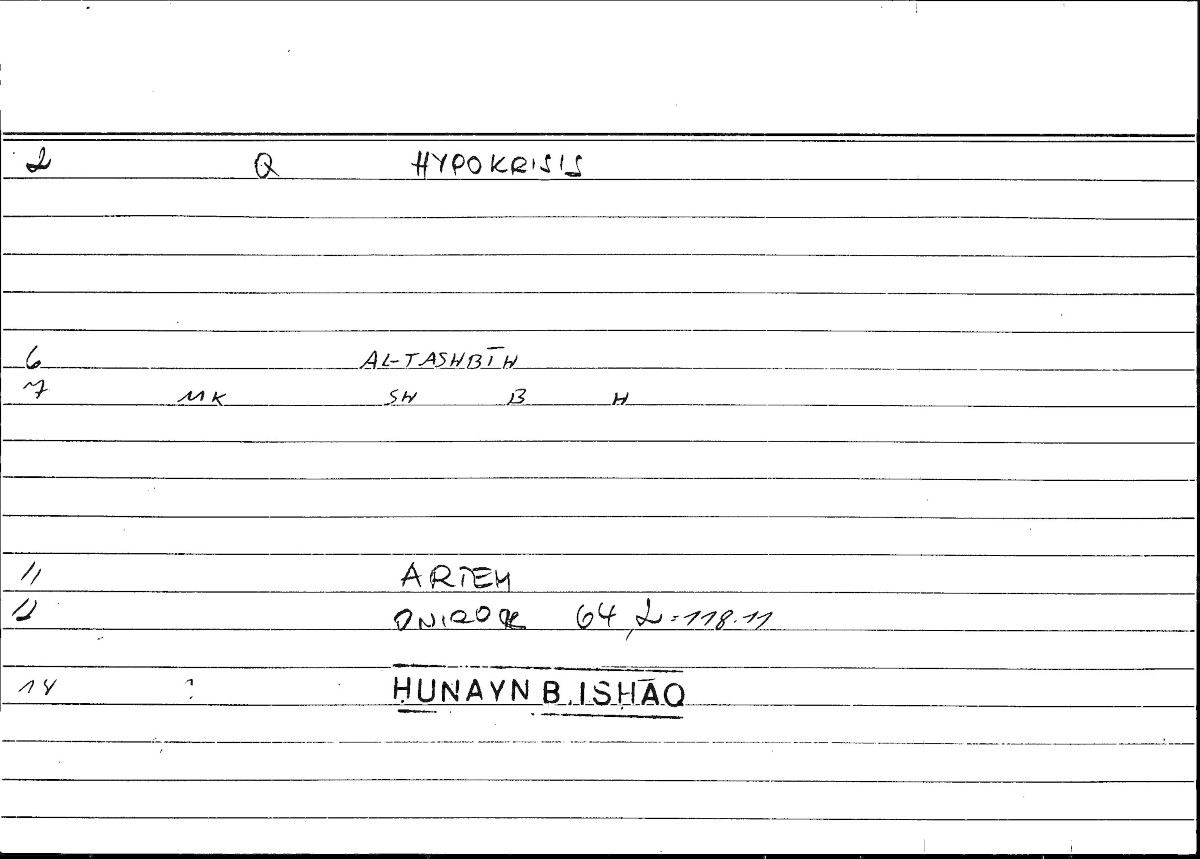 2 Q HYPOKRISIS
6 AL-TASHBĪH
7 MK SH B H
11 ARTEM
12 ONIROCR 64,2=118.11
14 ? ḤUNAYN B. ISḤĀQ